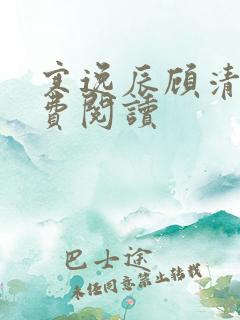 寒逸辰顾清
費閱讀
巴士途
未经同意禁止转载